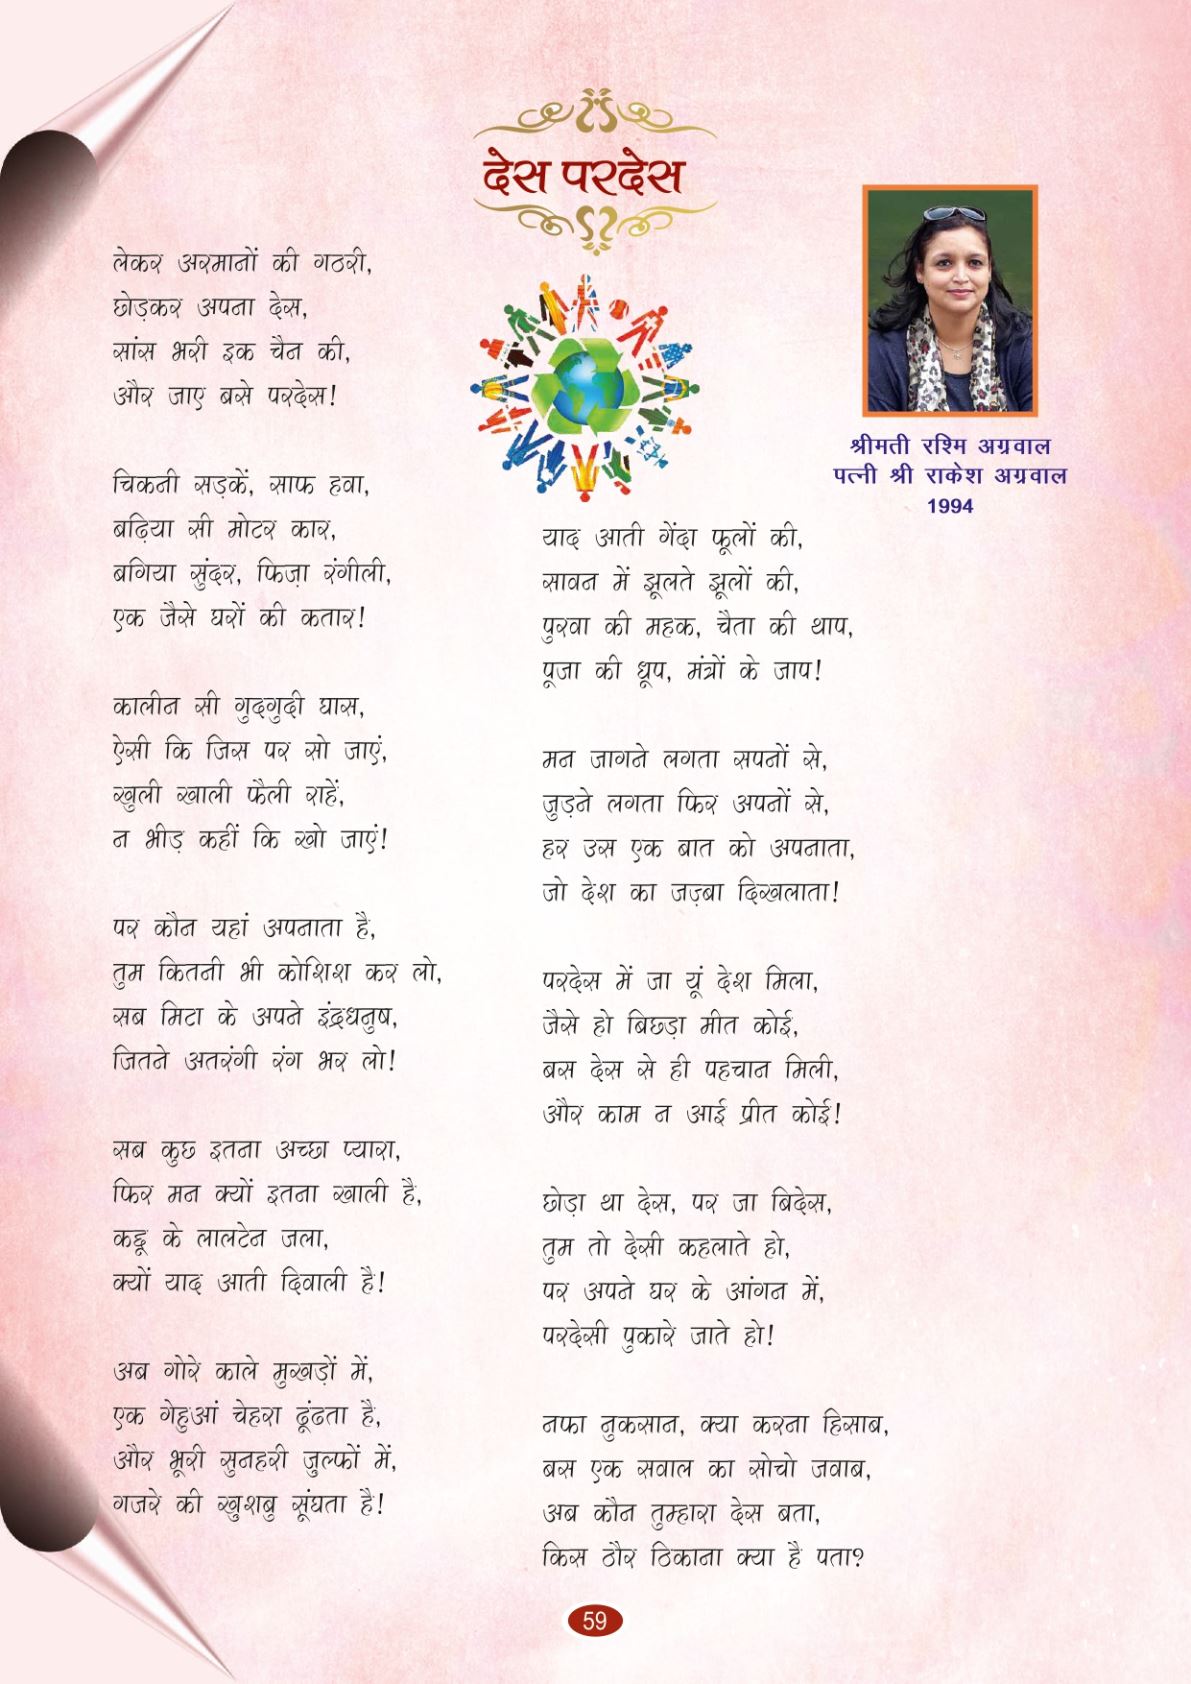 देस परदेस
लेकर अरमानों की गठरी,
छोड़कर अपना देस,
सांस भरी इक चैन की,
और जाए बसे परदेस!
चिकनी सड़कें, साफ हवा,
बढ़िया सी मोटर कार,
बगिया सुंदर, फिज़ा रंगीली,
एक जैसे घरों की कतार!
कालीन सी गुदगुदी घास,
ऐसी कि जिस पर सो जाएं,
खुली खाली फैली राहें,
न भीड़ कहीं कि खो जाएं!
पर कौन यहां अपनाता है,
तुम कितनी भी कोशिश कर लो,
सब मिटा के अपने इंद्रधनुष,
जितने अतरंगी रंग भर लो!
सब कुछ इतना अच्छा प्यारा,
फिर मन क्यों इतना खाली है,
कद्दू के लालटेन जला,
क्यों याद आती दिवाली है!
अब गोरे काले मुखड़ों में,
एक गेहुआं चेहरा ढूंढता है,
और भूरी सुनहरी जुल्फों में,
गजरे की खुशबु सूंघता है!
श्रीमती रश्मि अग्रवाल
पत्नी श्री राकेश अग्रवाल
1994
याद आती गेंदा फूलों की,
सावन में झूलते झूलों की,
पुरवा की महक, चैता की थाप,
पूजा की धूप, मंत्रों के जाप!
मन जागने लगता सपनों से,
जुड़ने लगता फिर अपनों से,
हर उस एक बात को अपनाता,
जो देश का जज़्बा दिखलाता!
परदेस में जा यूं देश मिला,
जैसे हो बिछड़ा मीत कोई,
बस देस से ही पहचान मिली,
और काम न आई प्रीत कोई!
छोड़ा था देस, पर जा बिदेस,
तुम तो देसी कहलाते हो,
पर अपने घर के आंगन में,
परदेसी पुकारे जाते हो!
नफा नुकसान, क्या करना हिसाब,
बस एक सवाल का सोचो जवाब,
अब कौन तुम्हारा देस बता,
किस ठौर ठिकाना क्या है पता?
59